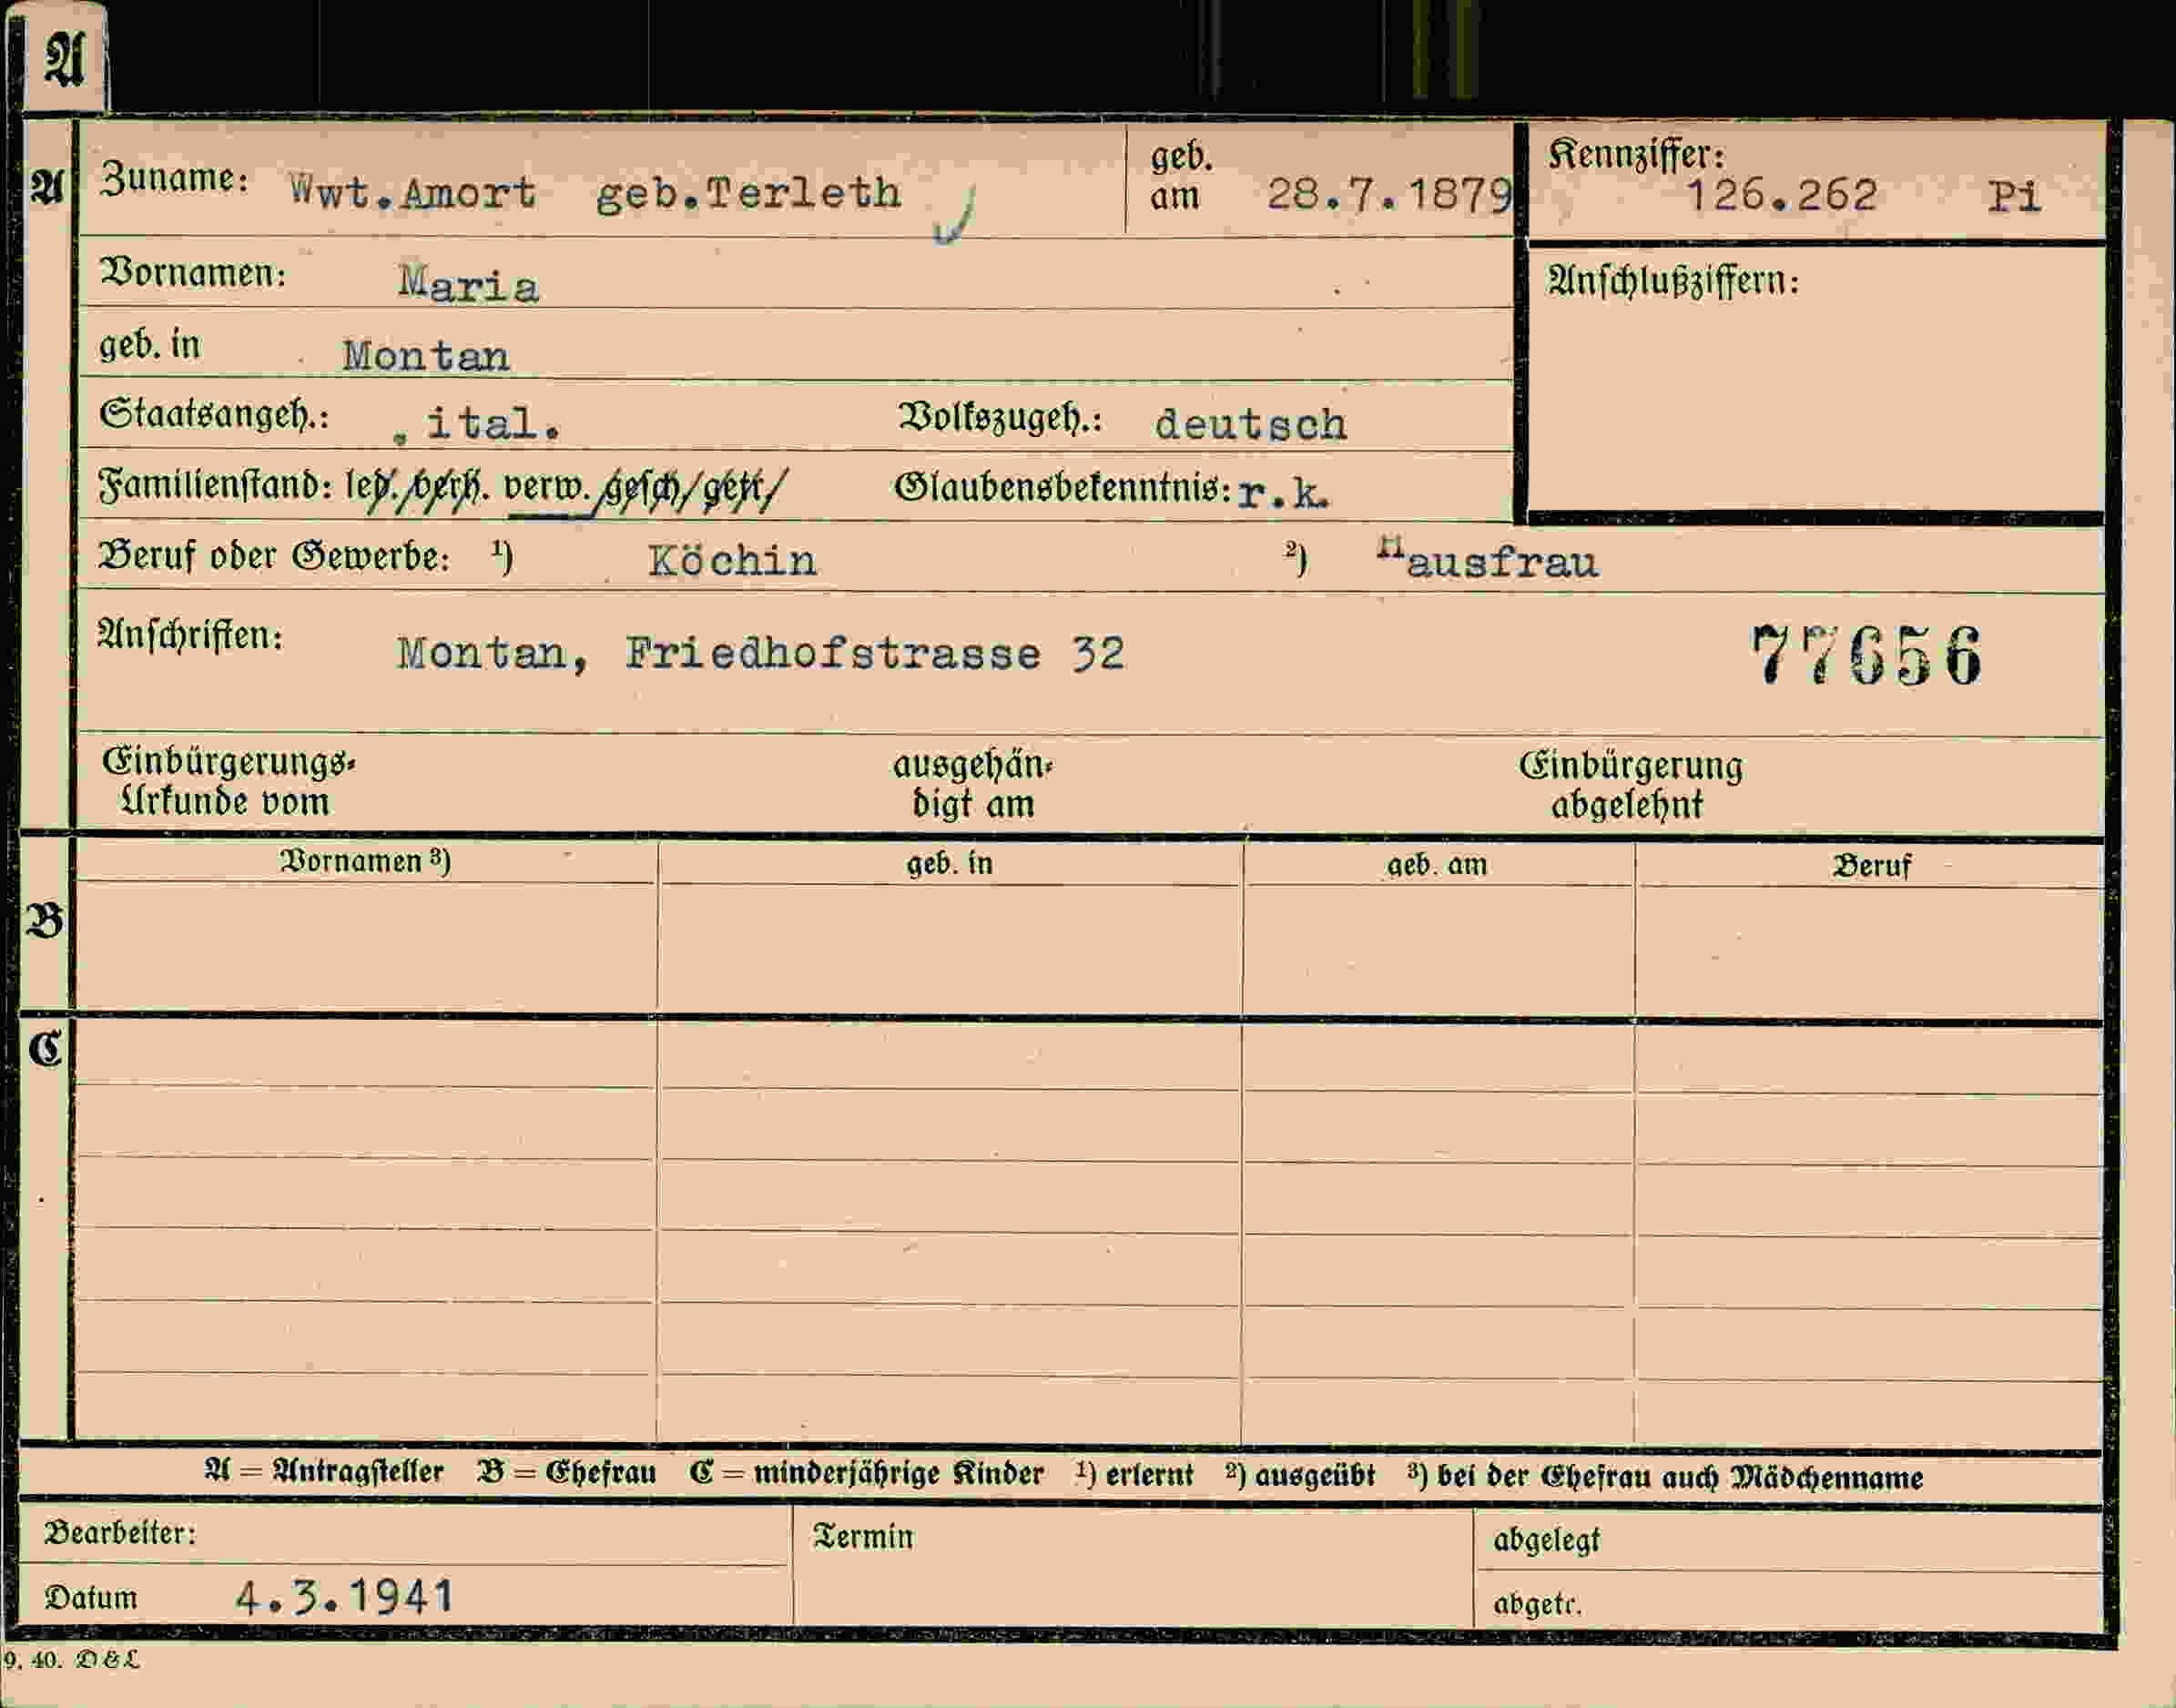 A
A Zuname: Wwt.Amort geb.Terleth geb. am 28.7.1879 Kennziffer: 126.262 Pi
Vornamen: Maria Anschlußziffern:
geb. in Montan
Staatsangeh.: ital. Volkszugeh.: deutsch
Familienstand: led. verh. verw. gesch. getr. Glaubensbekenntnis: r.k.
Beruf oder Gewerbe: ¹) Köchin ²) Hausfrau
Anschriften: Montan, Friedhofstrasse 32 77656
Einbürgerungs- ausgehän- Einbürgerung
Urkunde vom digt am abgelehnt
Vornamen ³) geb. in geb. am Beruf
B
C
A = Antragsteller B = Ehefrau C = minderjährige Kinder ¹) erlernt ²) ausgeübt ³) bei der Ehefrau auch Mädchenname
Bearbeiter: Termin abgelegt
Datum 4.3.1941 abgetr.
9. 40. D & L